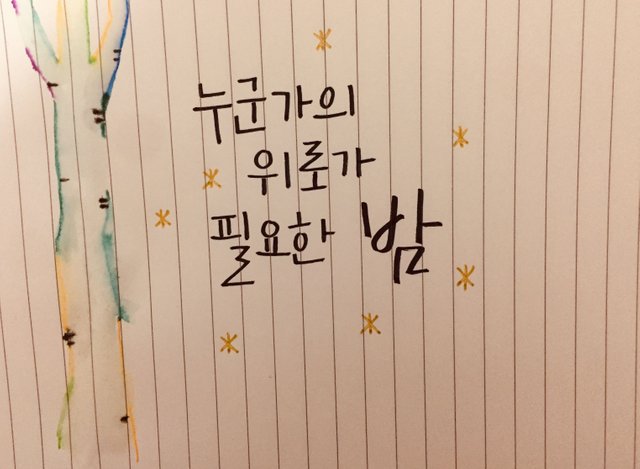 누군가의
위로가
필요한 밤